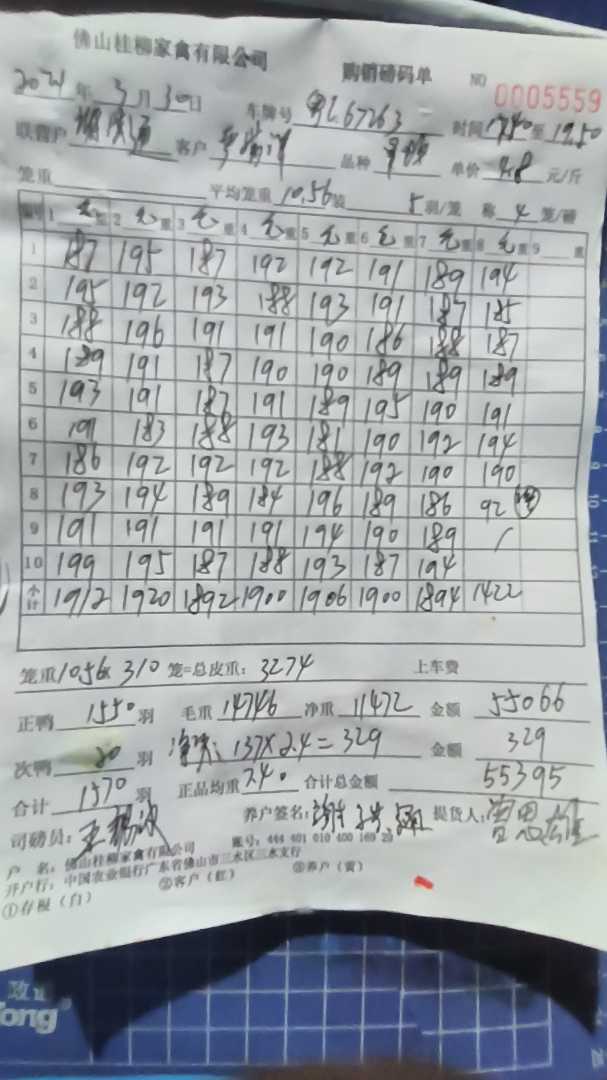 佛山桂柳家禽有限公司
购销磅码单 NO 0005559
2021年 3月 30日 车牌号 67263 时间 1740 至 1950
联营户 客户 品种 单价 4.8 元/斤
笼重 平均笼重 10.56 5 羽/笼 称 4 笼/磅
编号 1 毛重 2 毛重 3 毛重 4 毛重 5 毛重 6 毛重 7 毛重 8 毛重 9 重
1 187 195 187 192 192 191 189 194
2 195 192 193 188 193 191 187 185
3 188 196 191 191 190 186 188 187
4 189 191 187 190 190 189 189 189
5 193 191 187 191 189 195 190 191
6 191 183 188 193 181 190 192 194
7 186 192 192 192 188 192 190 190
8 193 194 189 184 196 189 186 92
9 191 191 191 191 194 190 189 /
10 199 195 187 188 193 187 194
小计 1912 1920 1892 1900 1906 1900 1894 1422
笼重 10.56 x 310 笼=总皮重: 3274 上车费
正鸭 1550 羽 毛重 14746 净重 11472 金额 55066
次鸭 20 羽 137×2.4=329 金额 329
合计 1570 羽 正品均重 7.40 合计总金额 55395
司磅员: 养户签名: 提货人:
户 名: 佛山桂柳家禽有限公司 账号: 444 401 010 400 169 29
开户行: 中国农业银行广东省佛山市三水区三水支行
①存根(白) ②客户(红) ③养户(黄)
政
ong